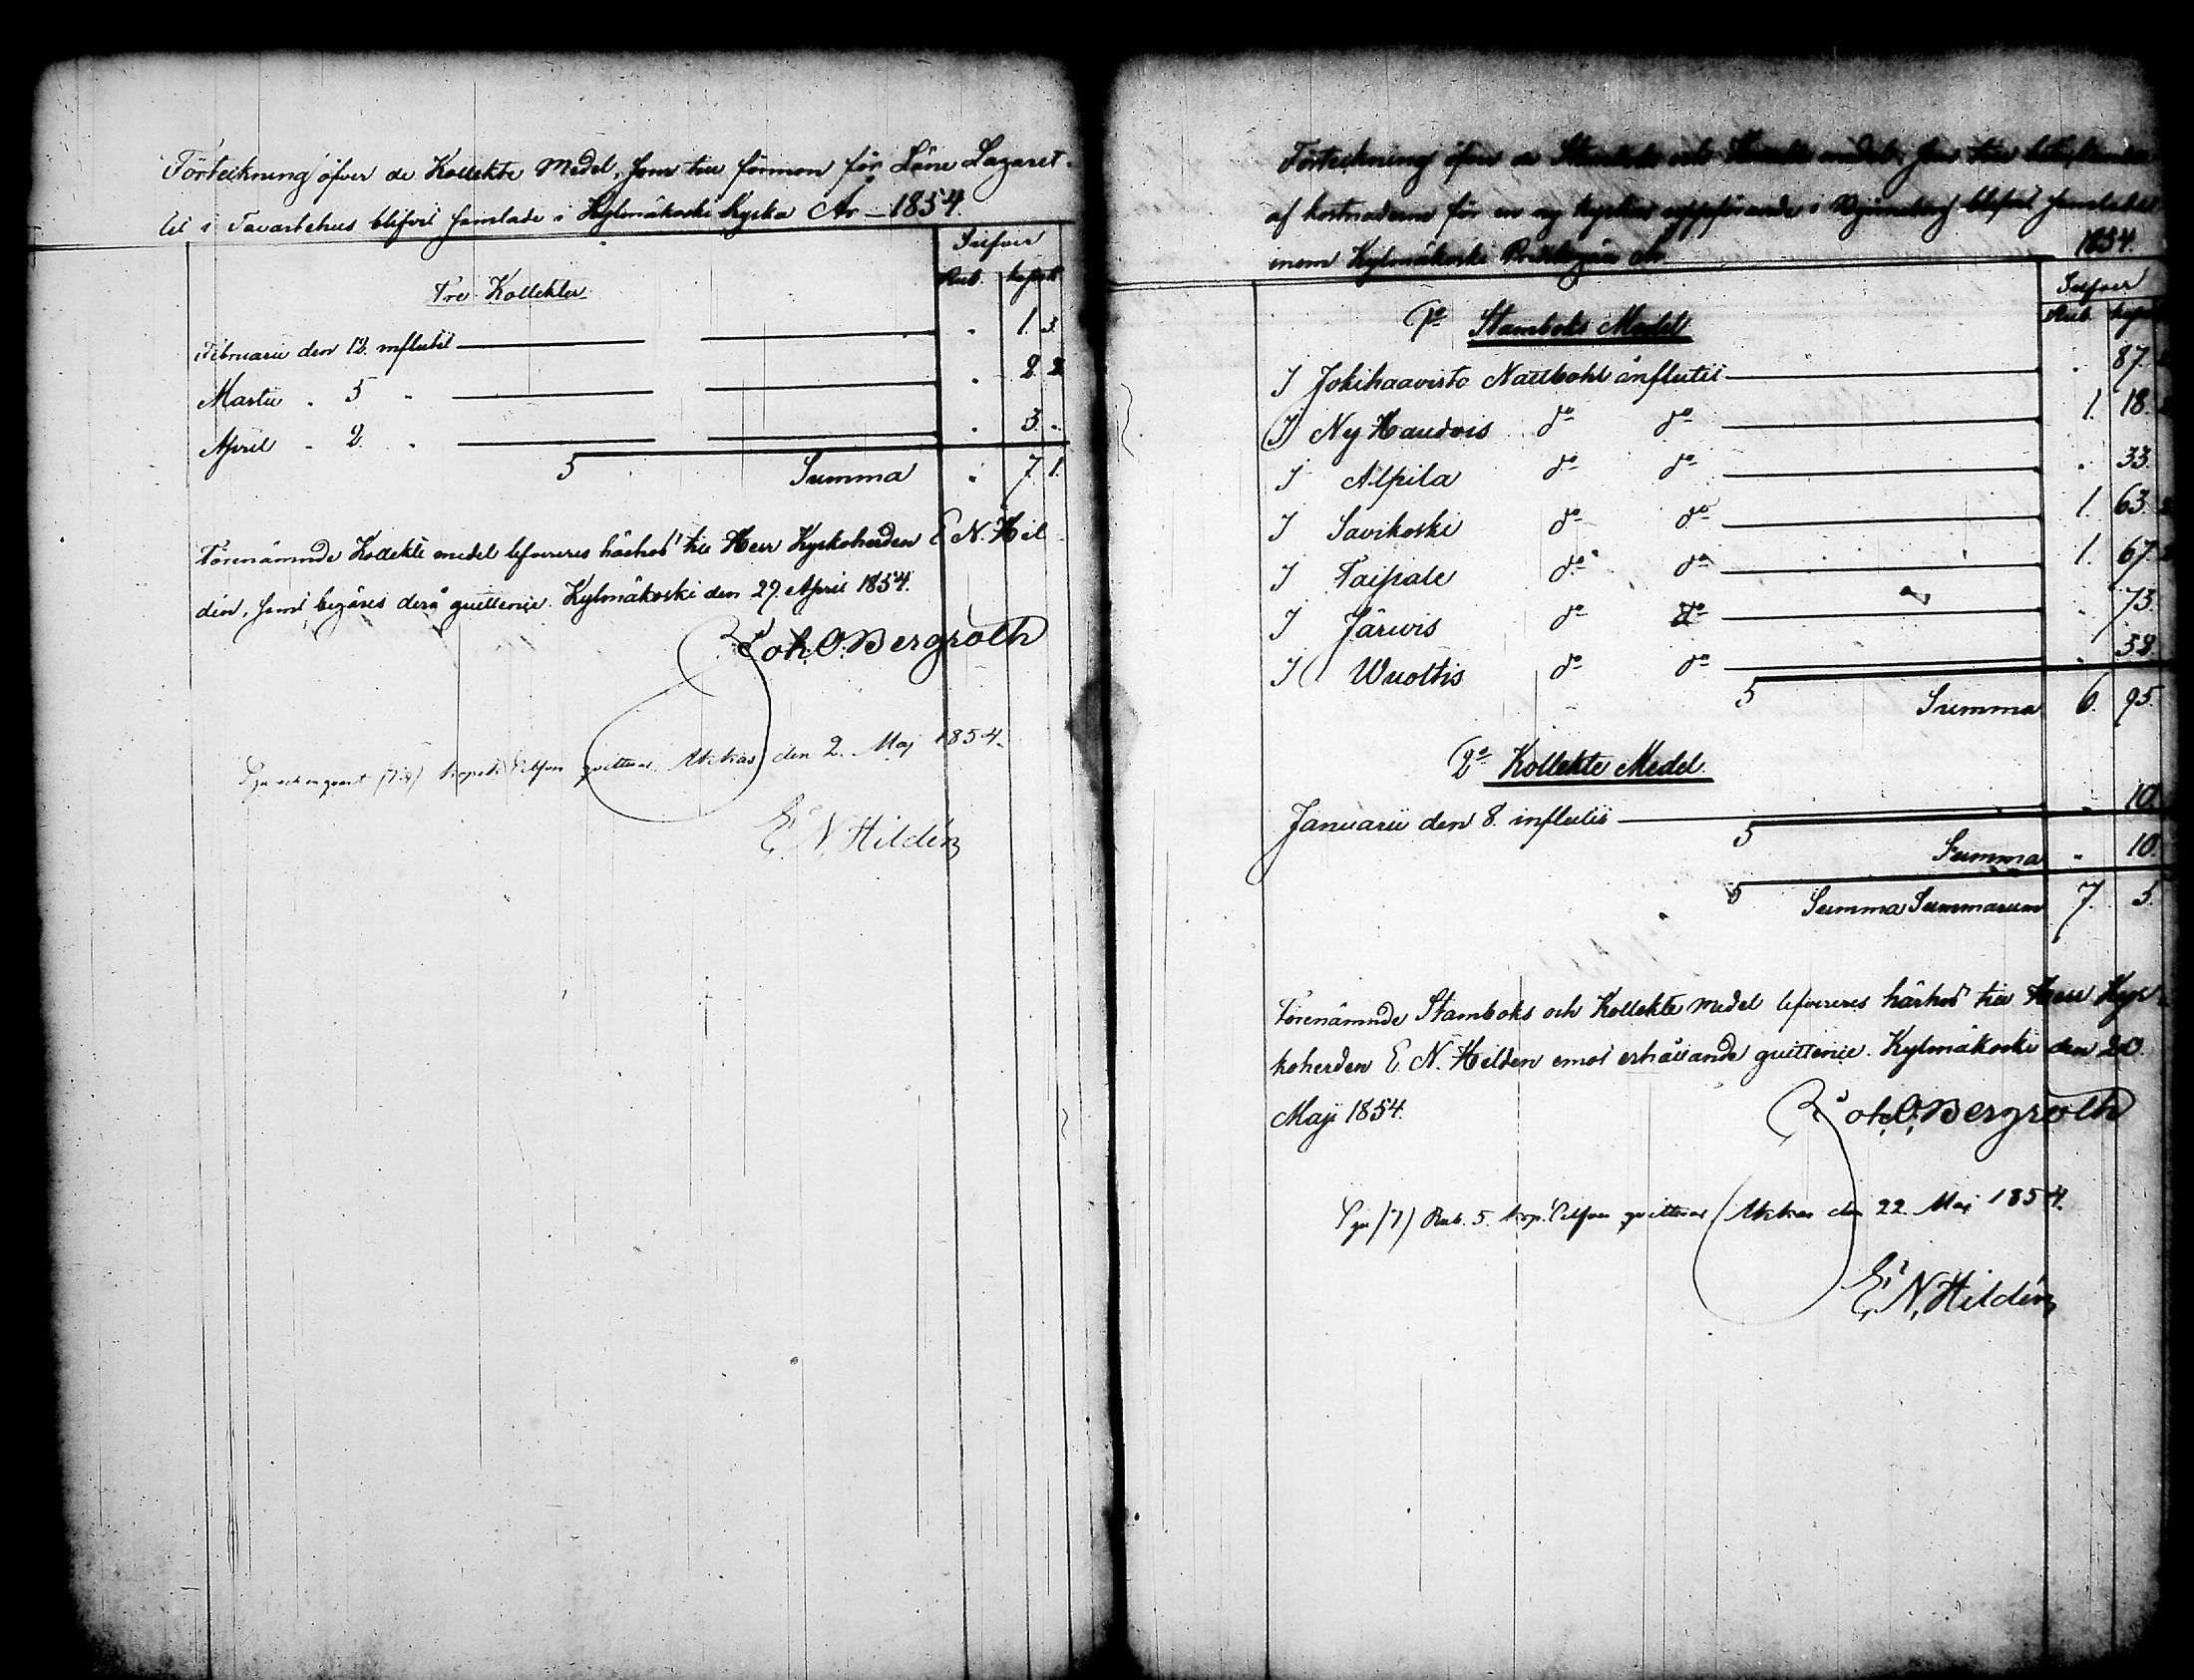 Förteckning öfver de Kollekte Medel, som till förmon för Läne Lazaret-
tet i Tavastehus blifvit samlade i Kylmäkoski kyrka År 1854.
Silfver
Rub. kopek
Tre Kollekter
Februarii den 12. influtit " 1. 3.
Martii " 5 " " 2 2
April " 2. " " 3. "
S Summa " 7. 1.
Förenämnde Kollekte medel lefvereres härhos till Herr Kyrkoherden E. N. Hil
dén, samt begäres derå quittence. Kylmäkoski den 27. April 1854.
Joh. O. Bergroth
Sju och en quart (7 1/4) kopek Silfver quitteras Akkas den 2. Maj 1854.
E. N. Hildén
Förteckning öfver de Stamboks och Kollekte medel, som till
af kostnaderne för en ny kyrkas uppförande i Björneborg blifvit samlade
inom Kylmäkoski År 1854.
Silfver
Rub. kopek
1º Stamboks Medel
I Jokihaavisto Nattvohl influtit " 87.
I Ny Haudvis dº dº 1. 18.
I Alpila dº dº " 33.
I Savikoski dº dº 1. 63.
I Taipale dº dº 1. 67.
I Järvis dº dº " 73.
I Wuoltis dº dº " 52.
S Summa 6. 95.
2º Kollekte Medel.
Januarii den 8. influtit " 10.
S Summa " 10.
S Summa Summarum 7. 5.
Förenämnde Stamboks och Kollekte medel lefvereres härhos till Herr Kyr-
koherden E. N. Hildén emot erhållande quittence. Kylmäkoski den 20.
Maji 1854.
Joh. O. Bergroth
Sju (7) Rub. 5. kop. Silfver quitteras Akkas den 22. Maj 1854.
E. N. Hildén